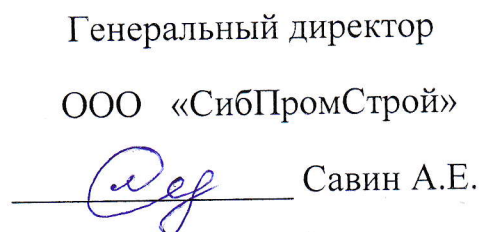 Генеральный директор
ООО «СибПромСтрой»
Савин А.Е.